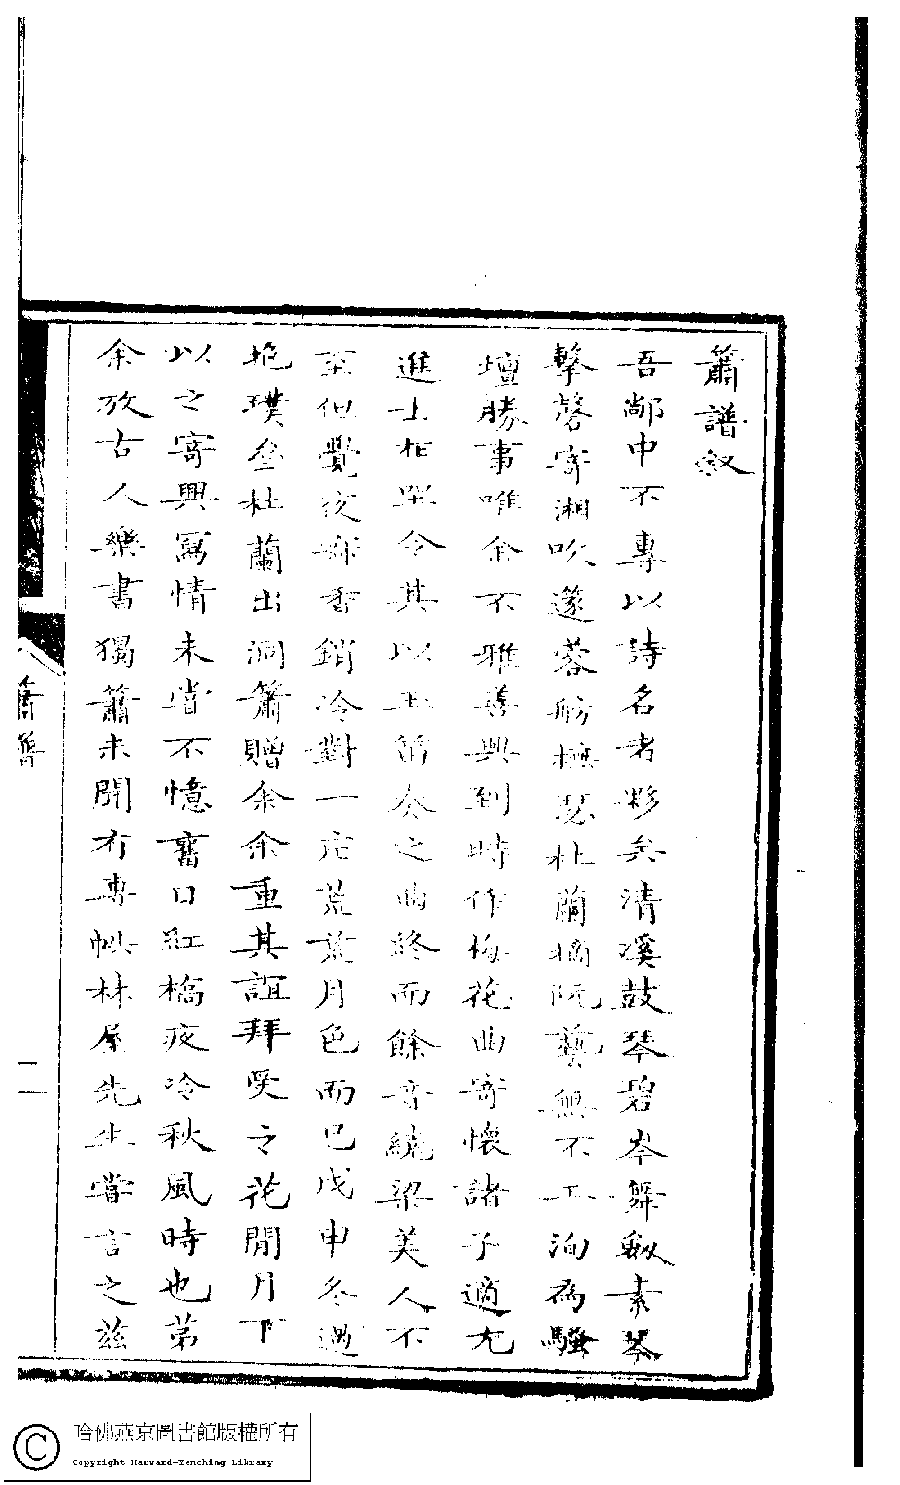 簫譜敘
吾鄰中不專以詩名者夥矣清溪鼓琴碧岑舞劍素琴
擊磬寄湘吹邃蓉舫橅瑟杜蘭摘阮藝無不工洵為騷
壇勝事唯余不雅善興到時作梅花曲寄懷諸子適尤
進士相門令其以玉笛奏之曲終而餘音繞梁美人不
至似覺夜 香銷冷對一庭荒荒月色而已戊申冬過
 璞坐杜蘭出洞簫贈余余重其誼拜受之花間月下
以之寄興寫情未嘗不憶舊日紅橋夜冷秋風時也第
余攷古人樂書獨簫未聞有專帙林屋先生嘗言之茲
簫譜
一
哈佛燕京圖書館版權所有
Copyright Harvard-Yenching Library